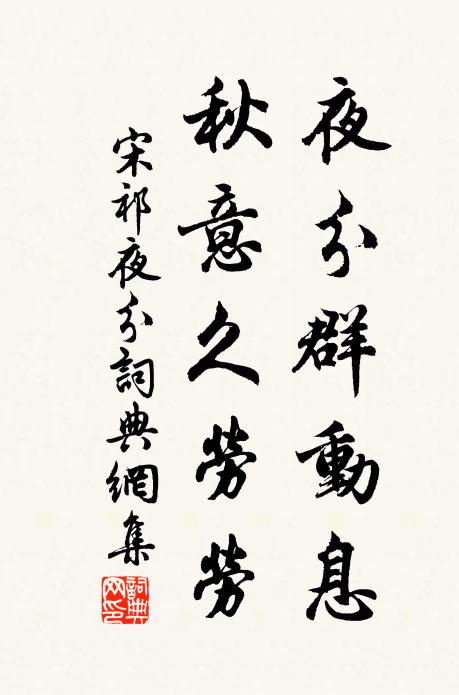 夜分群動息
秋意久勞勞
宋祁夜分詞典網集
詞典网印